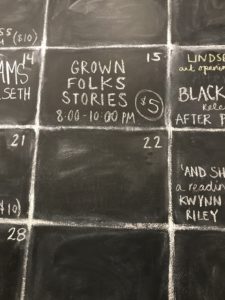 ($10)
14
AMS
SETH
15
GROWN
FOLKS
STORIES
8:00-10:00 PM
$5
LINDSE
art openin
BLACK
Rele
AFTER P
21
$10)
22
'AND SH
a readin
KWYNN
RILEY
28